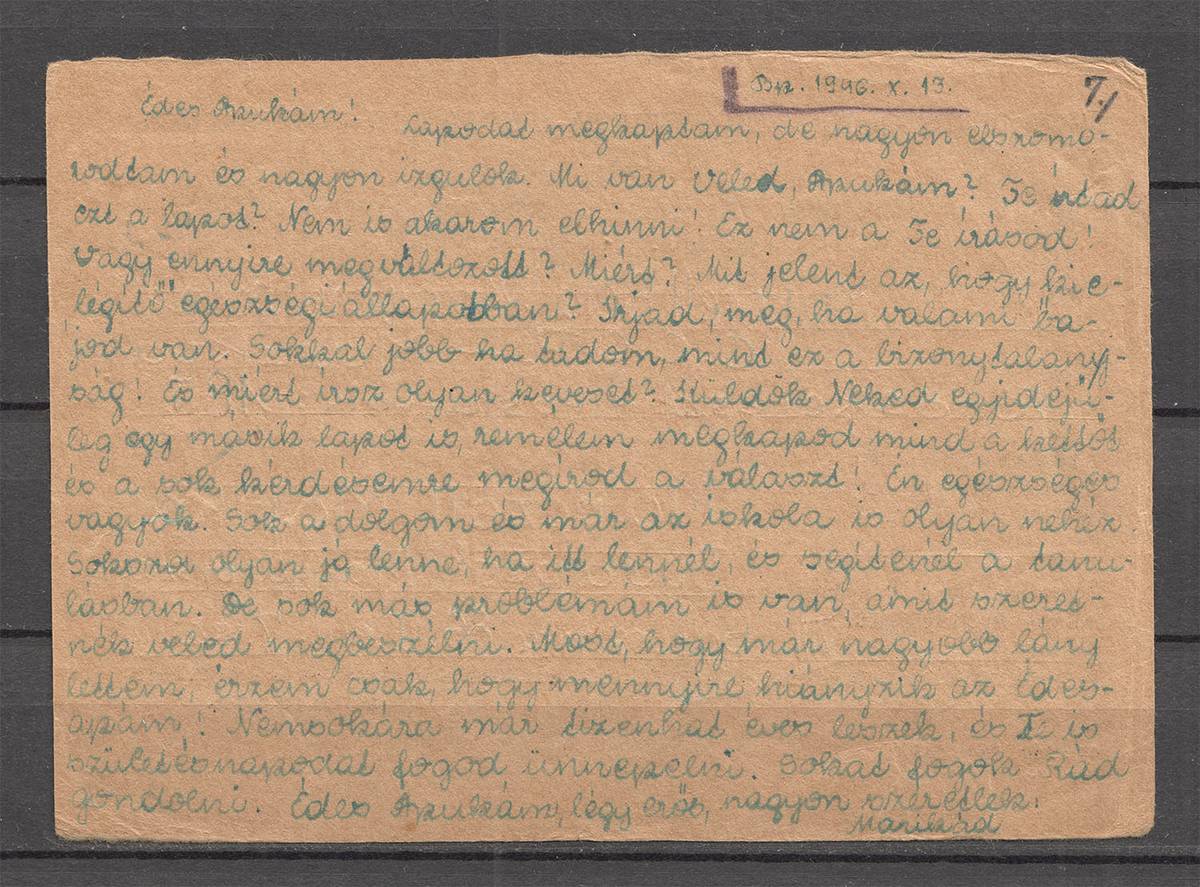 Bp. 1946. X. 13.
7./
Édes Apukám!
Lapodat megkaptam, de nagyon elszomo-
rodtam és nagyon izgulok. Mi van Veled, Apukám? Te irtad
ezt a lapot? Nem is akarom elhinni! Ez nem a Te írásod!
Vagy ennyire megváltozott? Miért? Mit jelent az, hogy „kie-
légítő" egészségi állapotban? Írjad, meg, ha valami ba-
jod van. Sokkal jobb ha tudom, mint ez a bizonytalany-
ság! És miért írsz olyan keveset? Küldök Neked egyidejü-
leg egy másik lapot is, remélem megkapod mind a kettőt
és a sok kérdésemre megírod a választ! Én egészséges
vagyok. Sok a dolgom és már az iskola is olyan nehéz.
Sokszor olyan jó lenne, ha itt lennél, és segítenél a tanu-
lásban. De sok más problémám is van, amit szeret-
nék veled megbeszélni. Most, hogy már nagyobb lány
lettem, érzem csak, hogy mennyire hiányzik az Édes-
apám! Nemsokára már tizenhat éves leszek, és Te is
születésnapodat fogod ünnepelni. Sokat fogok Rád
gondolni. Édes Apukám, légy erős, nagyon szeretlek:
Marikád